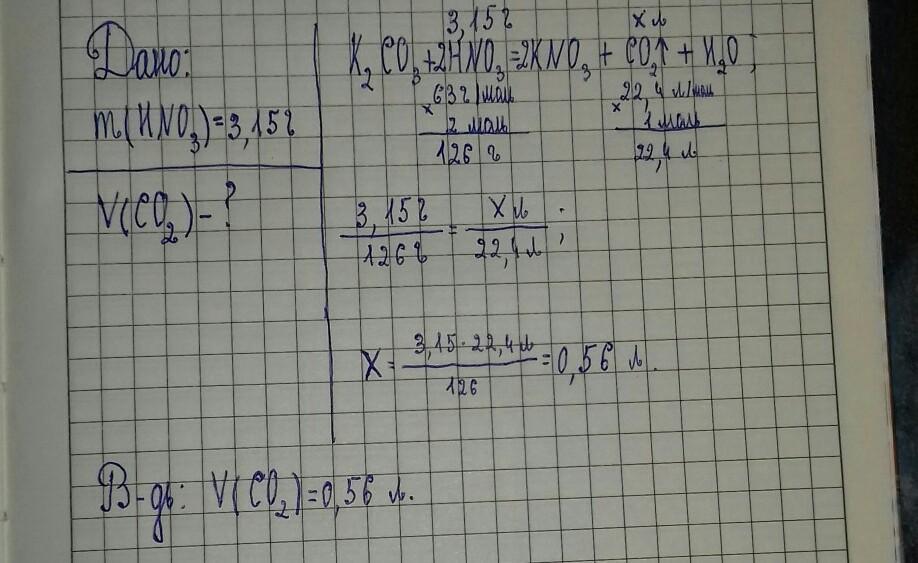 Дано:
m(HNO₃)=3,15г
V(CO₂)-?
3,15г
x л
K₂CO₃+2HNO₃=2KNO₃ + CO₂↑ + H₂O;
63г/моль
× 2 моль
126 г
22,4 л/моль
× 1 моль
22,4 л
3,15г/126г = X л/22,4 л;
X = 3,15·22,4 л/126 = 0,56 л.
В-дь: V(CO₂)=0,56 л.